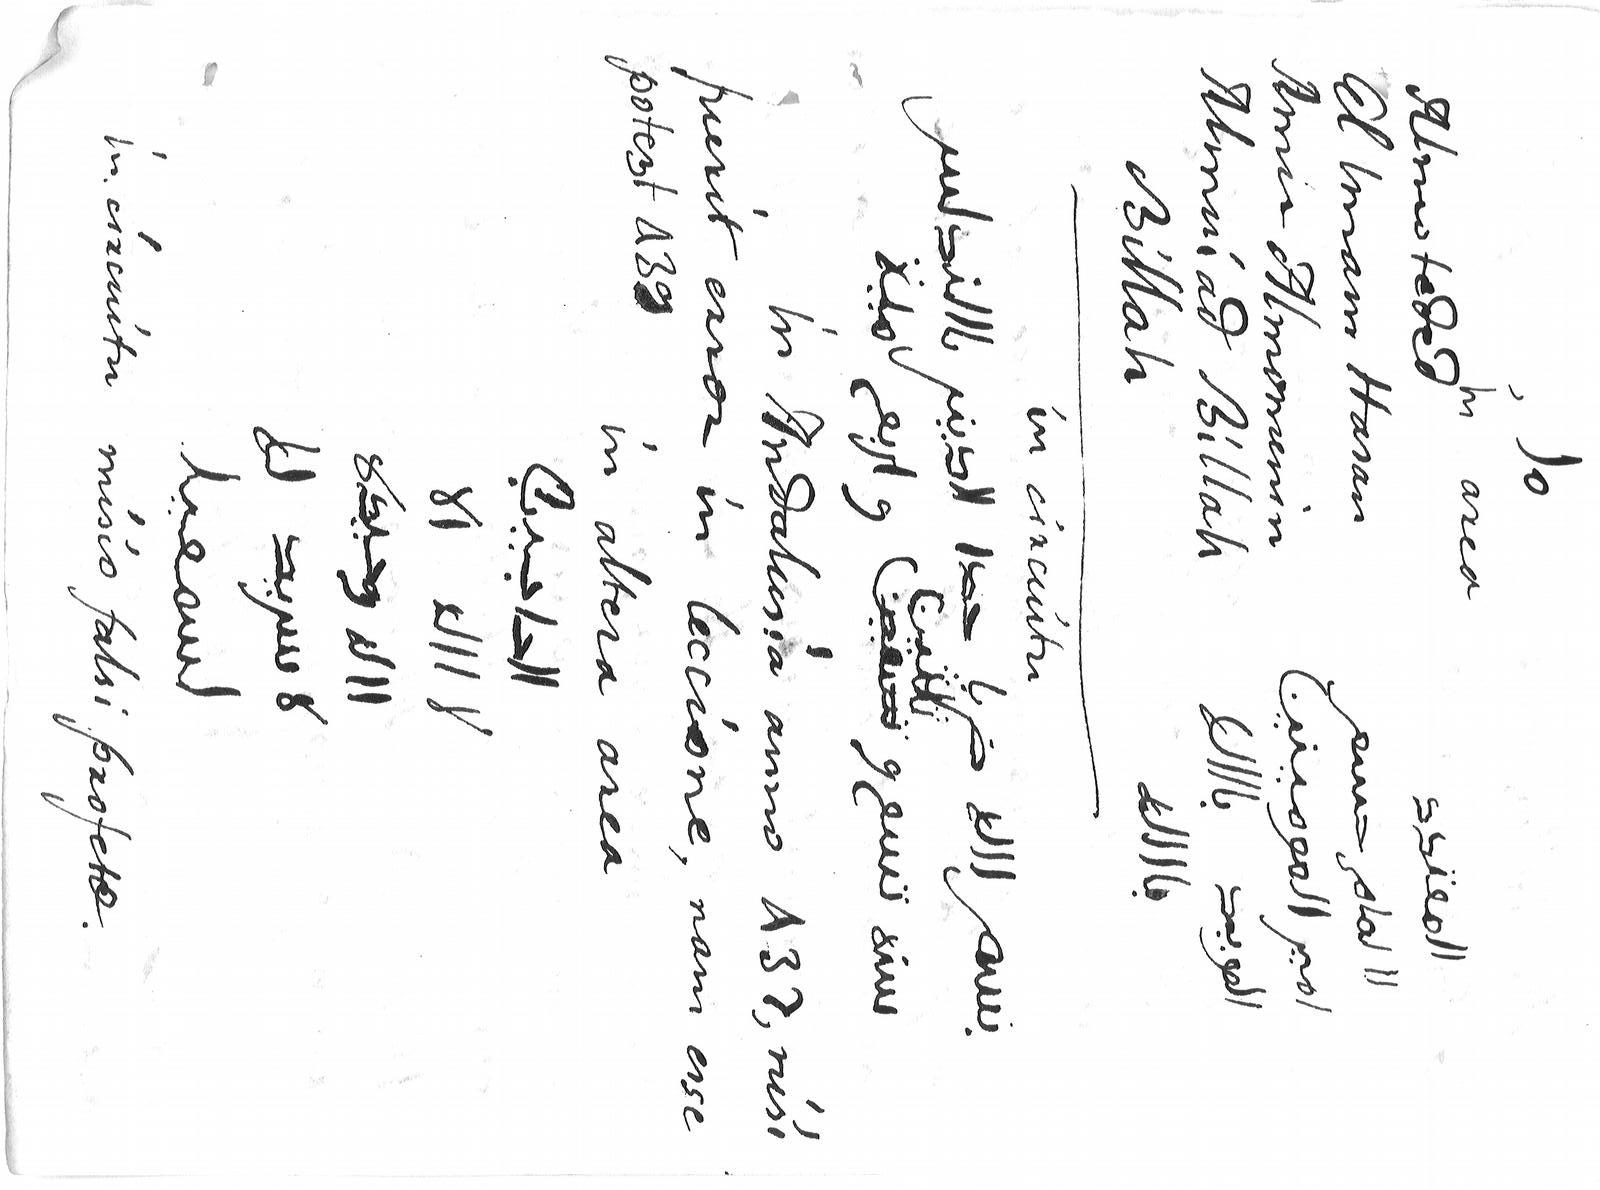 10.
in area
Almotaded المعتضد
El Imam Hasan الامام حسن
Amir Almomenin امير المومنين
Almuiad Billah المويد بالله
Billah بالله
in circuitu
بسم الله ضرب هذا الدينر بالاندلس
سنة تسع و ثلثين و اربع مائة
in Andalusia anno 437, nisi
fuerit error in leccione, nam esse
potest 439
in altera area
الحاجب
لا اله الا
الله وحده
لا شريك له
in circuitu misio falsi profeta.